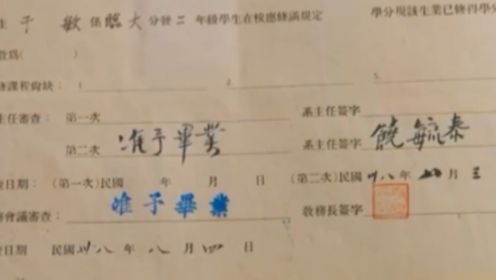 生于敏係臨大分發二年級學生在校應修滿規定　學分現該生業已修得學分
數為(　　)
修課程尙缺：1.　2.　3.
主任審查：第一次　系主任簽字
第二次　准予畢業　系主任簽字　饒毓泰
查日期：(第一次)民國　年　月　日　(第二次)民國卅八年　月三
務會議審查：准予畢業　敎務長簽字
查日期　民國卅八年八月四日